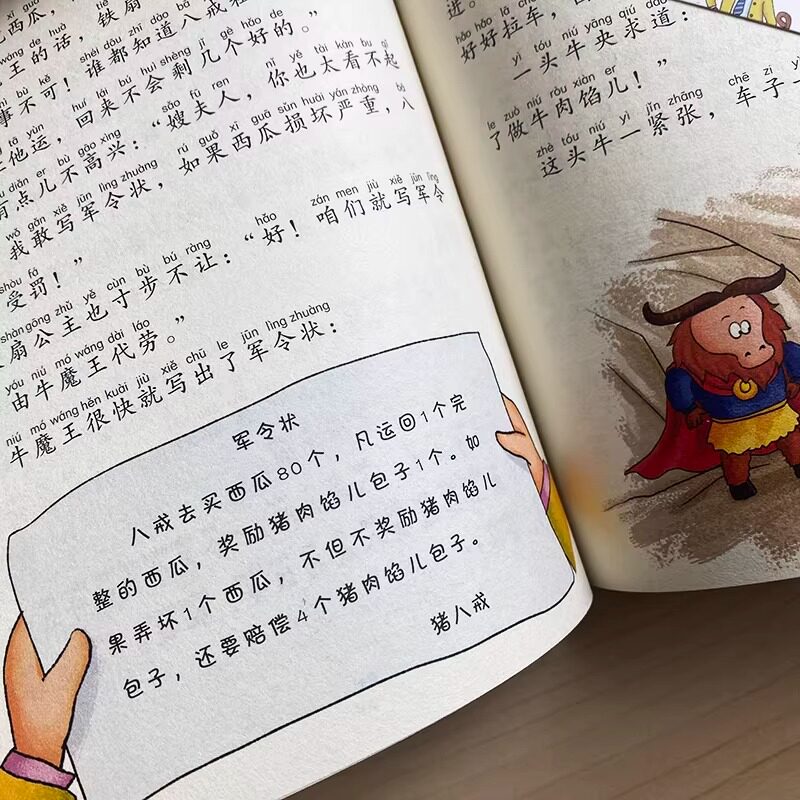 xī guā
西瓜，
wáng de huà
王的话，铁扇
bù kě shéi dōu zhī dào bā
事不可！谁都知道八戒
tā yùn huí lái bú huì shèng jǐ gè hǎo de
他运，回来不会剩几个好的。”
diǎn er bù gāo xìng sǎo fū ren nǐ yě tài kàn bu qǐ
有点儿不高兴：“嫂夫人，你也太看不起
wǒ gǎn xiě jūn lìng zhuàng rú guǒ xī guā sǔn huài yán zhòng bā
我敢写军令状，如果西瓜损坏严重，八
shòu fá
受罚！”
shàn gōng zhǔ yě cùn bù bú ràng hǎo zán men jiù xiě jūn lìng
扇公主也寸步不让：“好！咱们就写军令
yóu niú mó wáng dài láo
由牛魔王代劳。”
niú mó wáng hěn kuài jiù xiě chū le jūn lìng zhuàng
牛魔王很快就写出了军令状：
军令状
八戒去买西瓜80个，凡运回1个完
整的西瓜，奖励猪肉馅儿包子1个。如
果弄坏1个西瓜，不但不奖励猪肉馅儿
包子，还要赔偿4个猪肉馅儿包子。
猪八戒
进。
hǎo hǎo lā chē
好好拉车，
yì tóu niú yāng qiú dào
一头牛央求道：
le zuò niú ròu xiàn er
了做牛肉馅儿！”
zhè tóu niú yì jǐn zhāng chē zi yì
这头牛一紧张，车子一